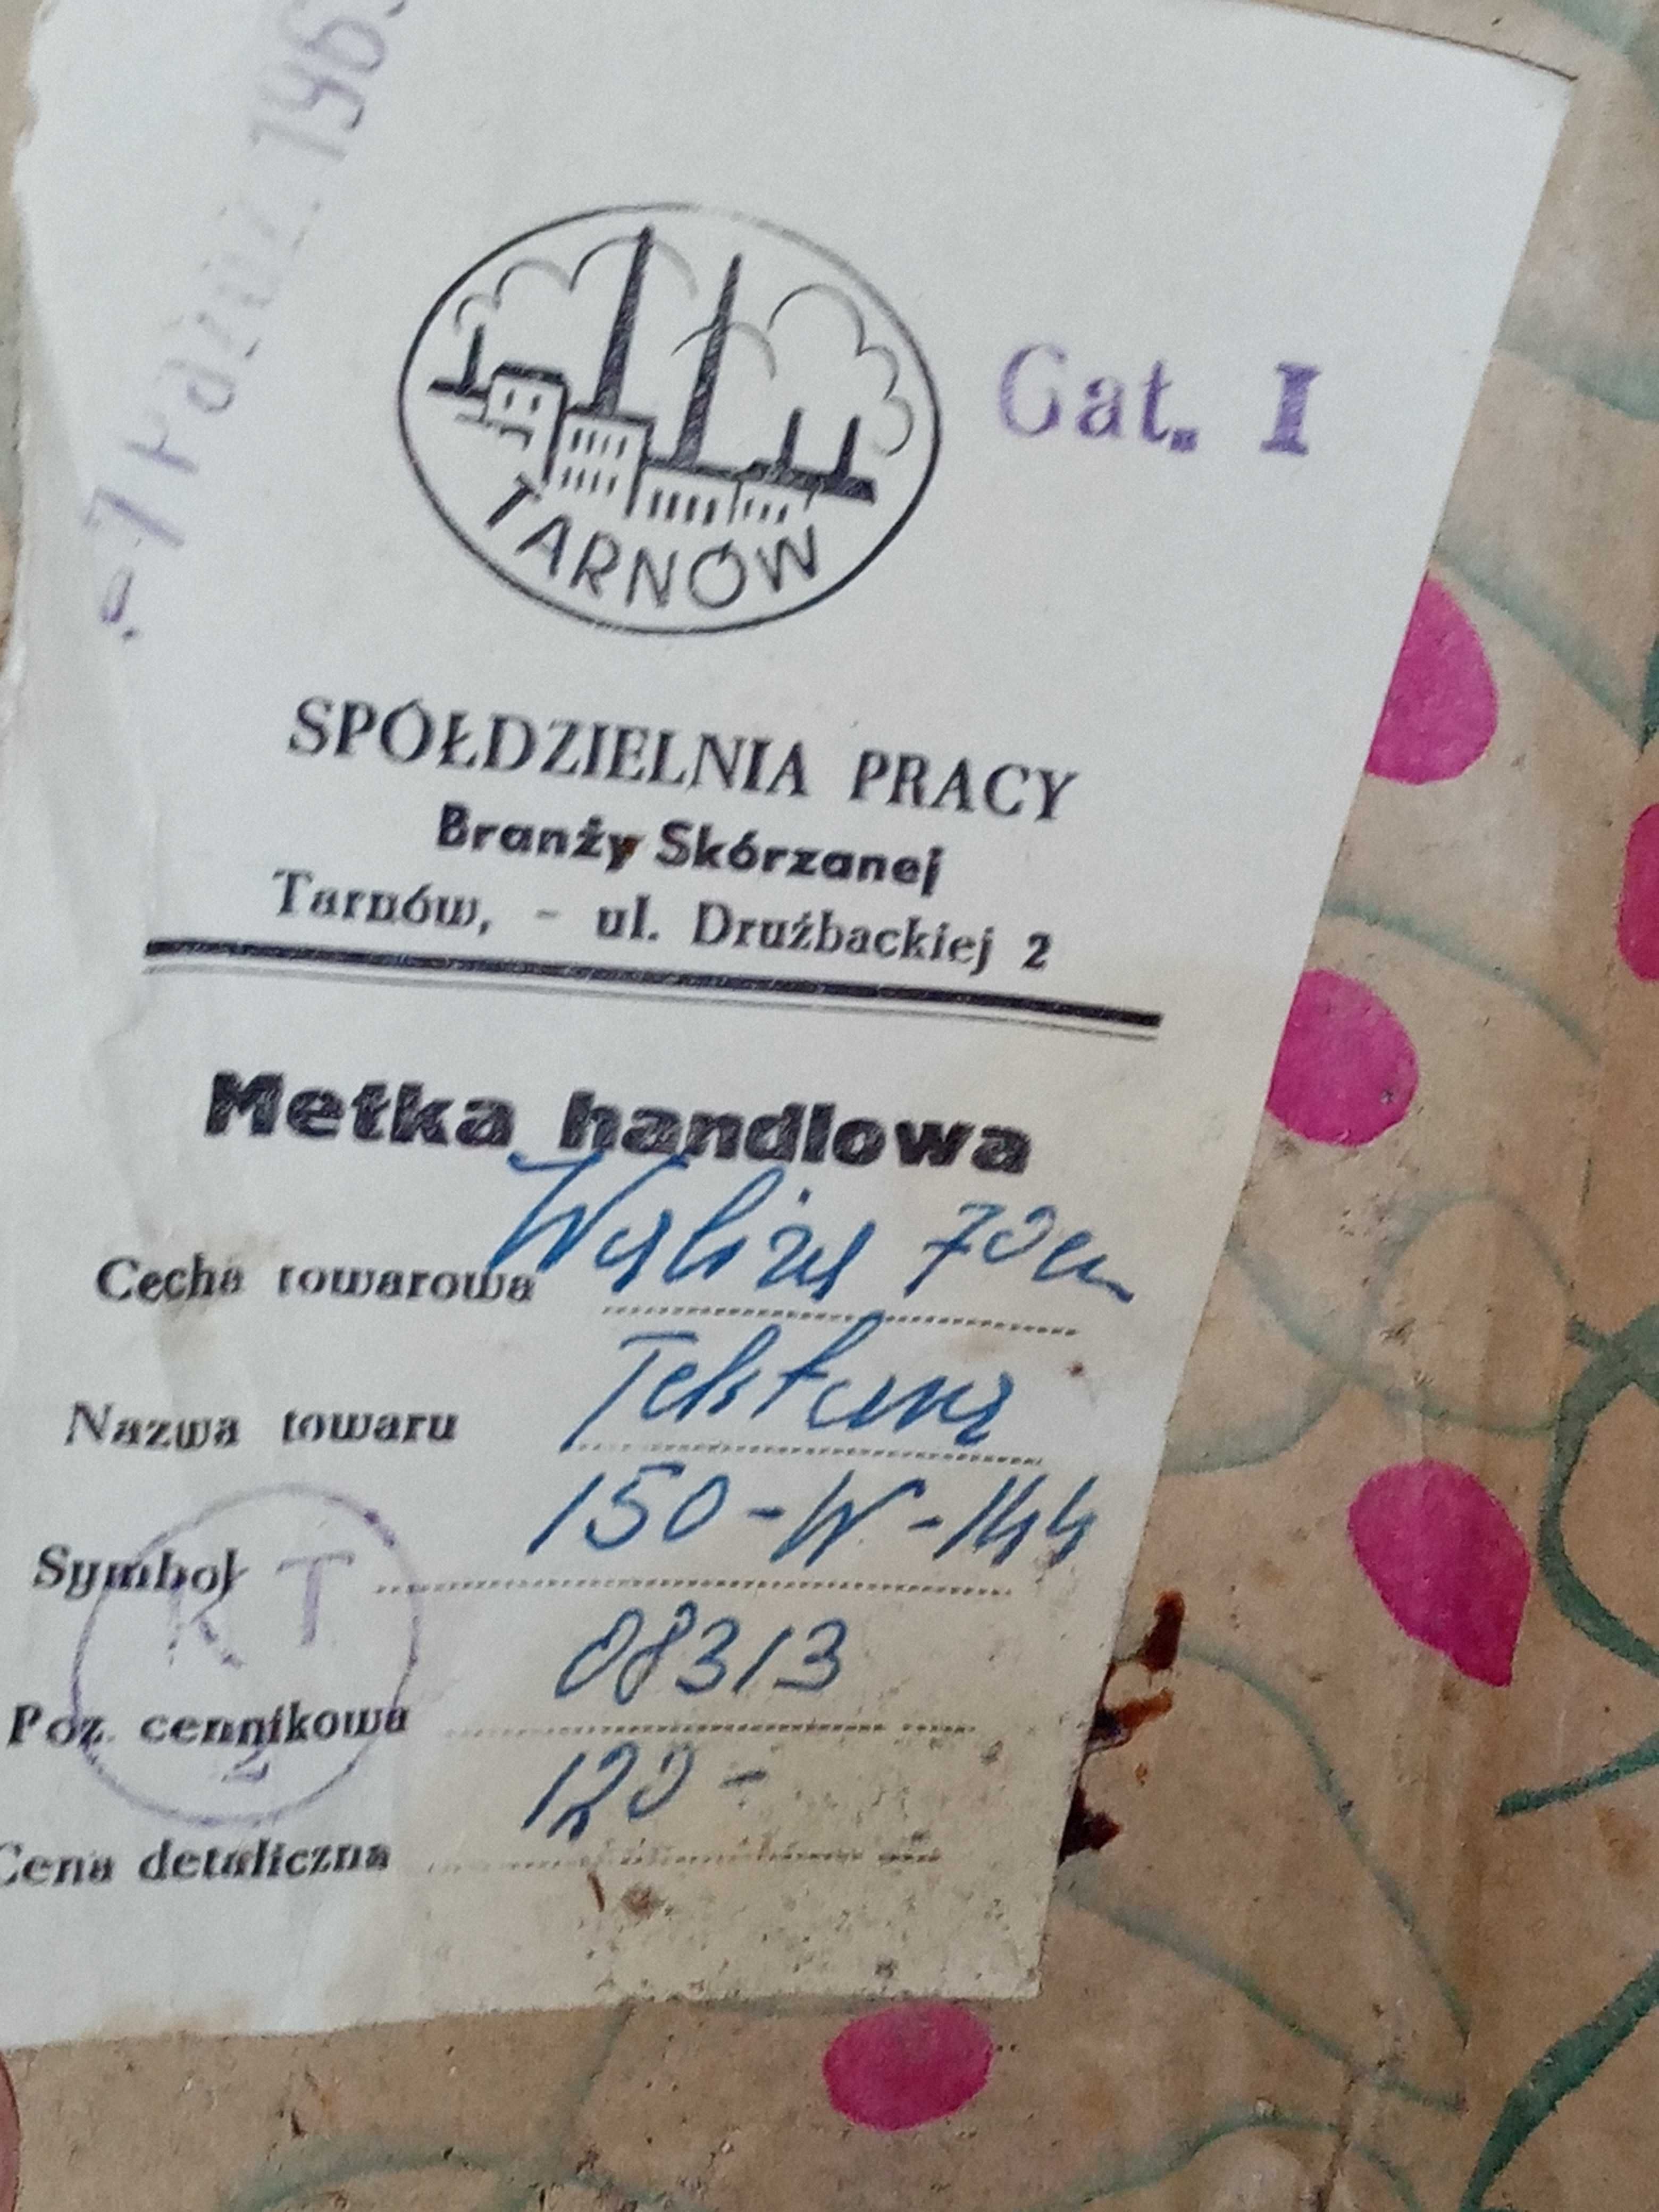 TARNÓW
Gat. I
SPÓŁDZIELNIA PRACY
Branży Skórzanej
Tarnów, - ul. Drużbackiej 2
Metka handlowa
Cecha towarowa Waliza 70 cm
Nazwa towaru Tektura
Symbol 150-W-144
KT
Poz. cennikowa 08313
2
Cena detaliczna 120 -